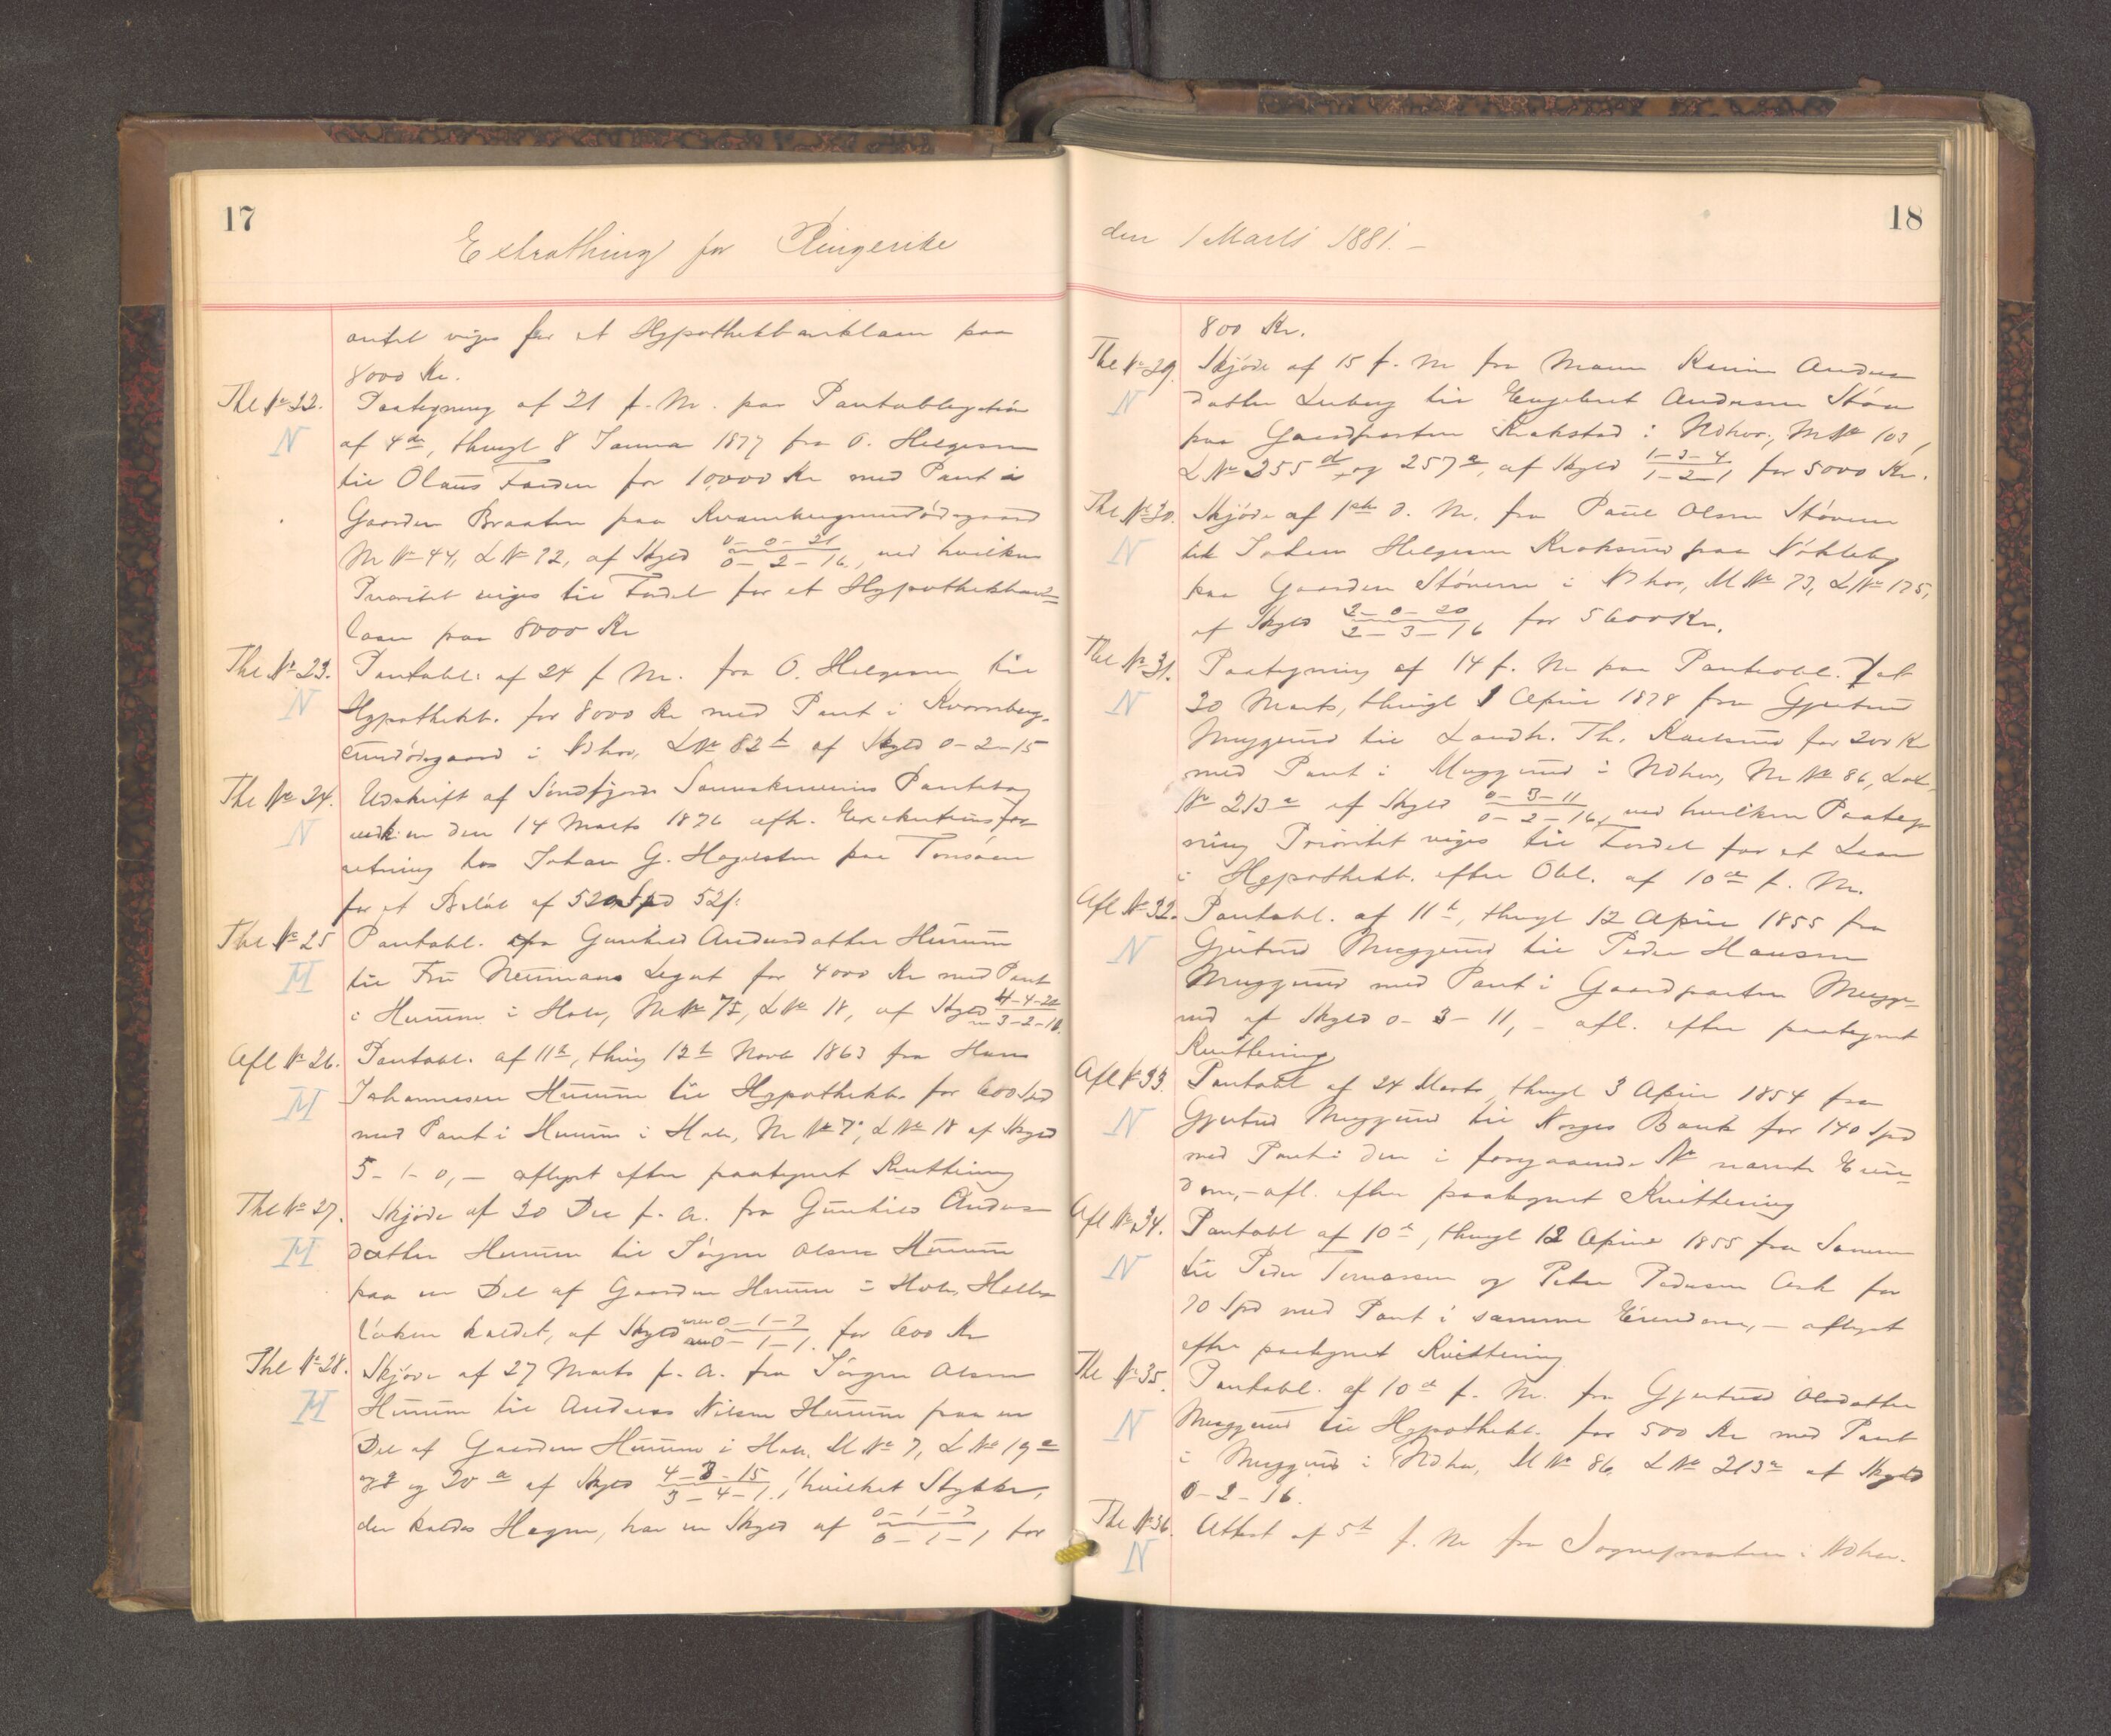 17
Extrathing for Ringerike
antet viges for et Hypothekbanklaan paa
8000 Kr.
Thl No 22. Paategning af 21 f. M. paa Pantobligation
N af 4de, thingl 8 Januar 1877 fra O. Helgesen
til Olaus Farden for 10,000 Kr med Pant i
Gaarden Braaten paa Kvernbergsundødegaard
M No 44, L No 92, af Skyld 0-0-21 / 0-2-16, ved hvilken
Prioritet viges til Fordel for et Hypothekbank=
laan paa 8000 Kr
Thl No 23. Pantobl: af 24 f. M. fra O. Helgesen til
N Hypothekb. for 8000 Kr med Pant i Kvernberg-
sundødegaard i Ndhov, L No 82 b af Skyld 0-2-15
Thl No 24. Udskrift af Søndfjords Sorenskriveries Pantebog
N den 14 Marts 1876 afh. Exekutionsfor-
retning hos Johan G. Hagelsten paa Tonsåsen
for et Beløb af 520 Spd 52 f:
Thl No 25 Pantobl. fra Gunhild Andersdatter Hurum
H til Fru Neumans Legat for 4000 Kr med Pant
i Hurum i Hole, M No 75, L No 18, af Skyld 4-4-20 / 3-2-10.
Afl No 26. Pantobl. af 11te, thingl 12te Novb 1863 fra Hans
H Johannesen Hurum til Hypothekb. for 600 Spd
med Pant i Hurum i Hole, M No 7, L No 18 af Skyld
5-1-0, - aflyst efter paategnet Kvittering
Thl No 27. Skjøde af 20 Dec f. A. fra Gunhild Anders
H datter Hurum til Jørgen Olsen Hurum
paa en Del af Gaarden Hurum i Hole,
kaldet, af Skyld 0-1-7 / 0-1-1. for 600 Kr
Thl No 28. Skjøde af 27 Marts f. A. fra Jørgen Olsen
H Hurum til Andreas Nilsen Hurum paa en
Del af Gaarden Hurum i Hole, M No 7, L No 19 a
og 20 a af Skyld 4-3-15 / 3-4-1, hvilket Stykke,
der kaldes Hagen, har en Skyld af 0-1-7 / 0-1-1 for
18
den 1 Marts 1881.-
800 Kr.
Thl No 29. Skjøde af 15 f. M fra Maren Karine Anders
N datter Luberg til Engebret Andersen Støa
paa Gaardparten Krakstad i Ndhov, M No 103,
L No 255 d og 257 a, af Skyld 1-3-4 / 1-2-1 for 5000 Kr.
Thl No 30. Skjøde af 1ste d. M. fra Paul Olsen Støveren
N til Johan Helgesen Kroksund paa Nøkleby
paa Gaarden Støveren i Ndhov, M No 73, L No 175,
af Skyld 2-0-20 / 2-3-16 for 5600 Kr.
Thl No 31. Paategning af 14 f. M paa Panteobl. af
N 20 Marts, thingl 1 April 1878 fra Gjertrud
Muggerud til Landh. Th. Karlsrud for 200 Kr
med Pant i Muggerud i Ndhov, M No 86, Løb
No 213 a af Skyld 0-3-11 / 0-2-16, ved hvilken Paateg-
ning Prioritet viges til Fordel for et Laan
i Hypothekb. efter Obl. af 10de f. M.
Afl No 32. Pantobl. af 11te, thingl 12 April 1855 fra
N Gjertrud Muggerud til Peder Hansen
Muggerud med Pant i Gaardparten Mugge-
rud af Skyld 0-3-11, - afl. efter paategnet
Kvittering
Afl No 33. Pantobl af 24 Marts, thingl 3 April 1854 fra
N Gjertrud Muggerud til Norges Bank for 140 Spd
med Pant i den i foregaaende No nævnte Eien-
dom, - afl. efter paategnet Kvittering
Afl No 34. Pantobl af 10de, thingl 12 April 1855 fra Samme
N til Peder Tomassen og Peter Pedersen Ask for
70 Spd med Pant i samme Eiendom, - aflyst
efter paategnet Kvittering
Thl No 35. Pantobl. af 10de f. M. fra Gjertrud Olsdatter
N Muggerud til Hypothekb. for 500 Kr med Pant
i Muggerud i Ndhov, M No 86, L No 213 a af Skyld
0-2-16.
Thl No 36. Attest af 5te f. M fra Sognepresten i Ndhov.
N